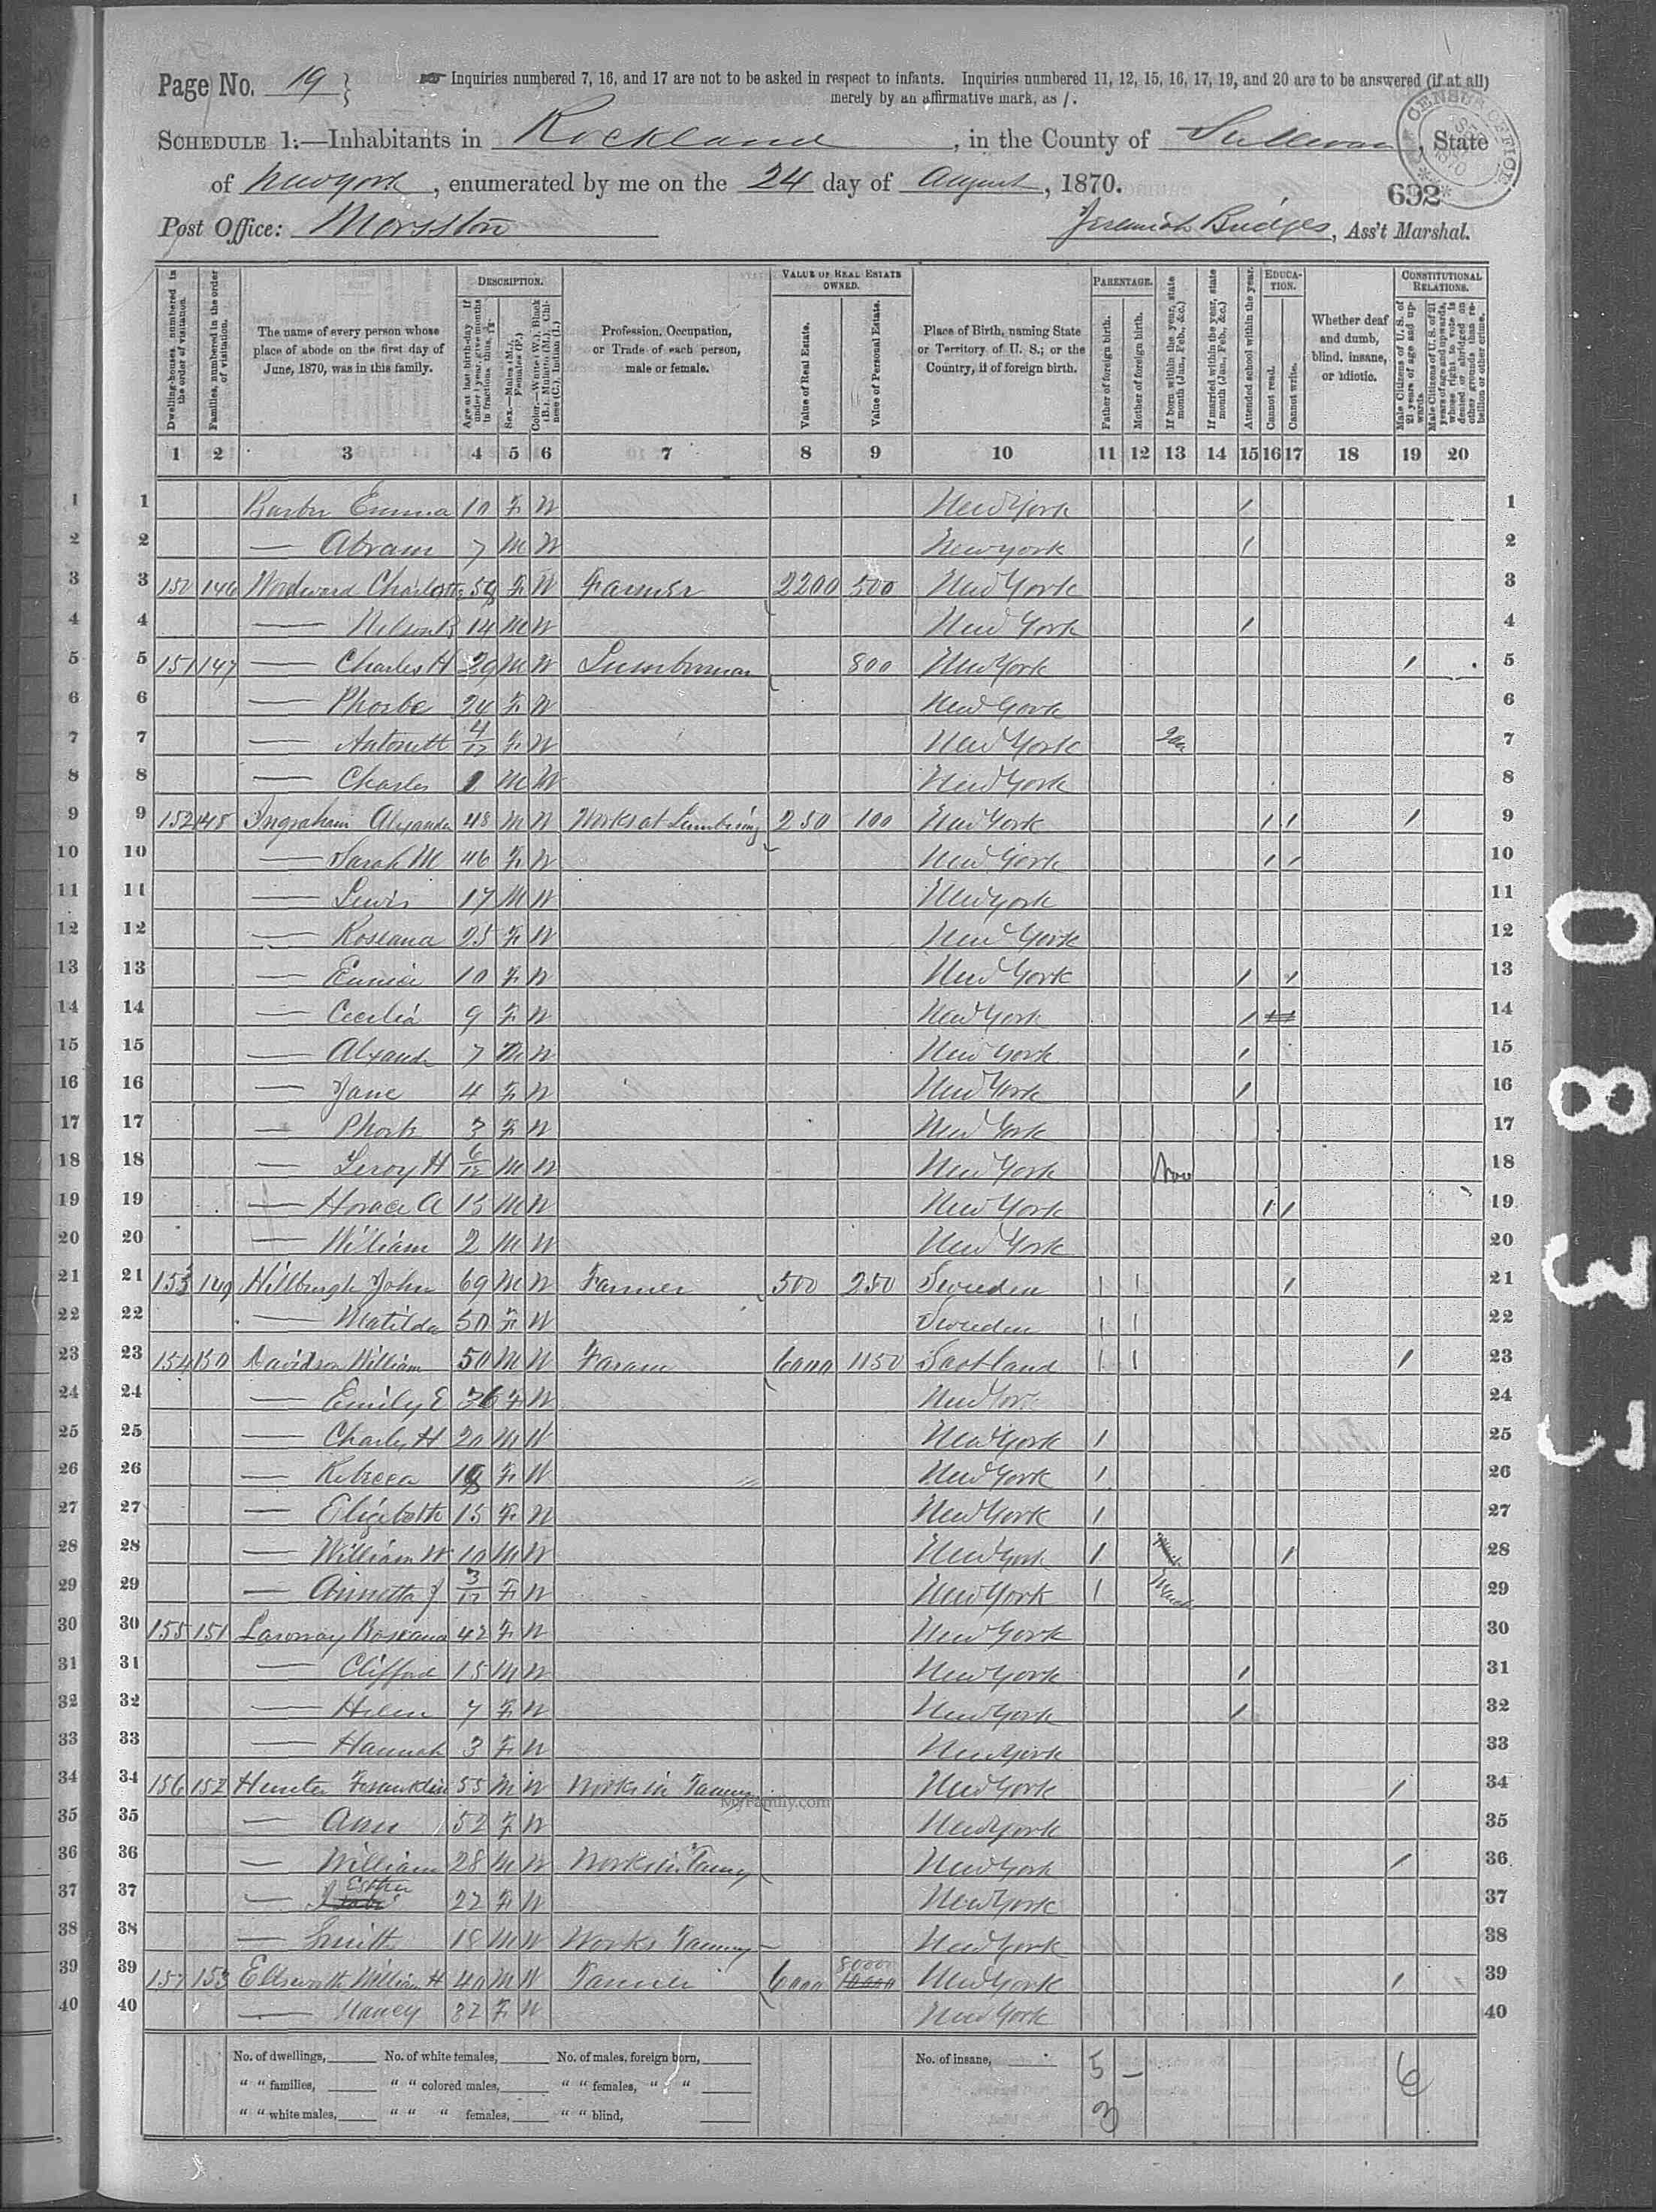 Page No. 19 } Inquiries numbered 7, 16, and 17 are not to be asked in respect to infants. Inquiries numbered 11, 12, 15, 16, 17, 19, and 20 are to be answered (if at all)
merely by an affirmative mark, as /.
SCHEDULE 1.—Inhabitants in Rockland, in the County of Sullivan, State
of New York, enumerated by me on the 24 day of August, 1870.
692
CENSUS OFFICE
1870
Post Office: Morsston
Jeremiah Bridges, Ass't Marshal.
Dwelling-houses, numbered in the order of visitation.
Families, numbered in the order of visitation.
The name of every person whose place of abode on the first day of June, 1870, was in this family.
DESCRIPTION.
Age at last birth-day. If under 1 year, give months in fractions, thus, 3/12.
Sex.—Males (M.), Females (F.)
Color.—White (W.), Black (B.), Mulatto (M.), Chinese (C.), Indian (I.)
Profession, Occupation, or Trade of each person, male or female.
VALUE OF REAL ESTATE OWNED.
Value of Real Estate.
Value of Personal Estate.
Place of Birth, naming State or Territory of U. S.; or the Country, if of foreign birth.
PARENTAGE.
Father of foreign birth.
Mother of foreign birth.
If born within the year, state month (Jan., Feb., &c.)
If married within the year, state month (Jan., Feb., &c.)
Attended school within the year.
EDUCATION.
Cannot read.
Cannot write.
Whether deaf and dumb, blind, insane, or idiotic.
CONSTITUTIONAL RELATIONS.
Male Citizens of U. S. of 21 years of age and upwards.
Male Citizens of U. S. of 21 years of age and upwards, whose right to vote is denied or abridged on other grounds than rebellion or other crime.
1 2 3 4 5 6 7 8 9 10 11 12 13 14 15 16 17 18 19 20
1 Barber Emma 10 F W New York / 1
2 — Abram 7 M W New york / 2
3 150 146 Woodward Charlotte 58 F W Farmer 2200 500 New York 3
4 — Nelson B 14 M W New York / 4
5 151 147 — Charles H 29 M W Lumberman 800 New York / 5
6 — Phoebe 24 F W New York 6
7 — Antonett 4/12 F W New York 7
8 — Charles 1 M W New York 8
9 152 148 Ingraham Alexander 48 M W Works at Lumbering 250 100 New York / / / 9
10 — Sarah M 46 F W New York / / 10
11 — Lewis 17 M W New york 11
12 — Roseana 25 F W New York 12
13 — Eunice 10 F W New York / / 13
14 — Cecelia 9 F W New York / 14
15 — Alexand 7 M W New York / 15
16 — Jane 4 F W New York / 16
17 — Phoebe 3 F W New York 17
18 — Leroy H 6/12 M W New York Nov 18
19 — Horace A 13 M W New York / / 19
20 — William 2 M W New York 20
21 153 149 Hillburgh John 69 M W Farmer 500 250 Sweden / / / 21
22 — Matilda 50 F W Sweden / / 22
23 154 150 Davidson William 50 M W Farmer 6000 1150 Scotland / / / 23
24 — Emily E 36 F W New Yor 24
25 — Charles H 20 M W New York / 25
26 — Rebecca 18 F W New York / 26
27 — Elizabeth 15 F W New York / 27
28 — William W 10 M W New York / / 28
29 — Annetta J 3/12 F W New York / March 29
30 155 151 Laroway Roseana 42 F W New York 30
31 — Clifford 15 M W New York / 31
32 — Helen 7 F W New York / 32
33 — Hannah 3 F W New York 33
34 156 152 Hunter Franklin 55 M W Works in Tannery New York / 34
MyFamily.com
35 — Ann 52 F W New York 35
36 — William 28 M W Works in Tannery New York / 36
37 — Esther 22 F W New York 37
38 — Smith 18 M W Works Tannery New York 38
39 157 153 Ellsworth William H 40 M W Tanner 6000 80000 New York / 39
40 — Nancy 32 F W New York 40
No. of dwellings, No. of white females, No. of males, foreign born, No. of insane, 5 — 6
" " families, " " colored males, " " females, " "
" " white males, " " " females, " " blind, 3
0 8 3 5